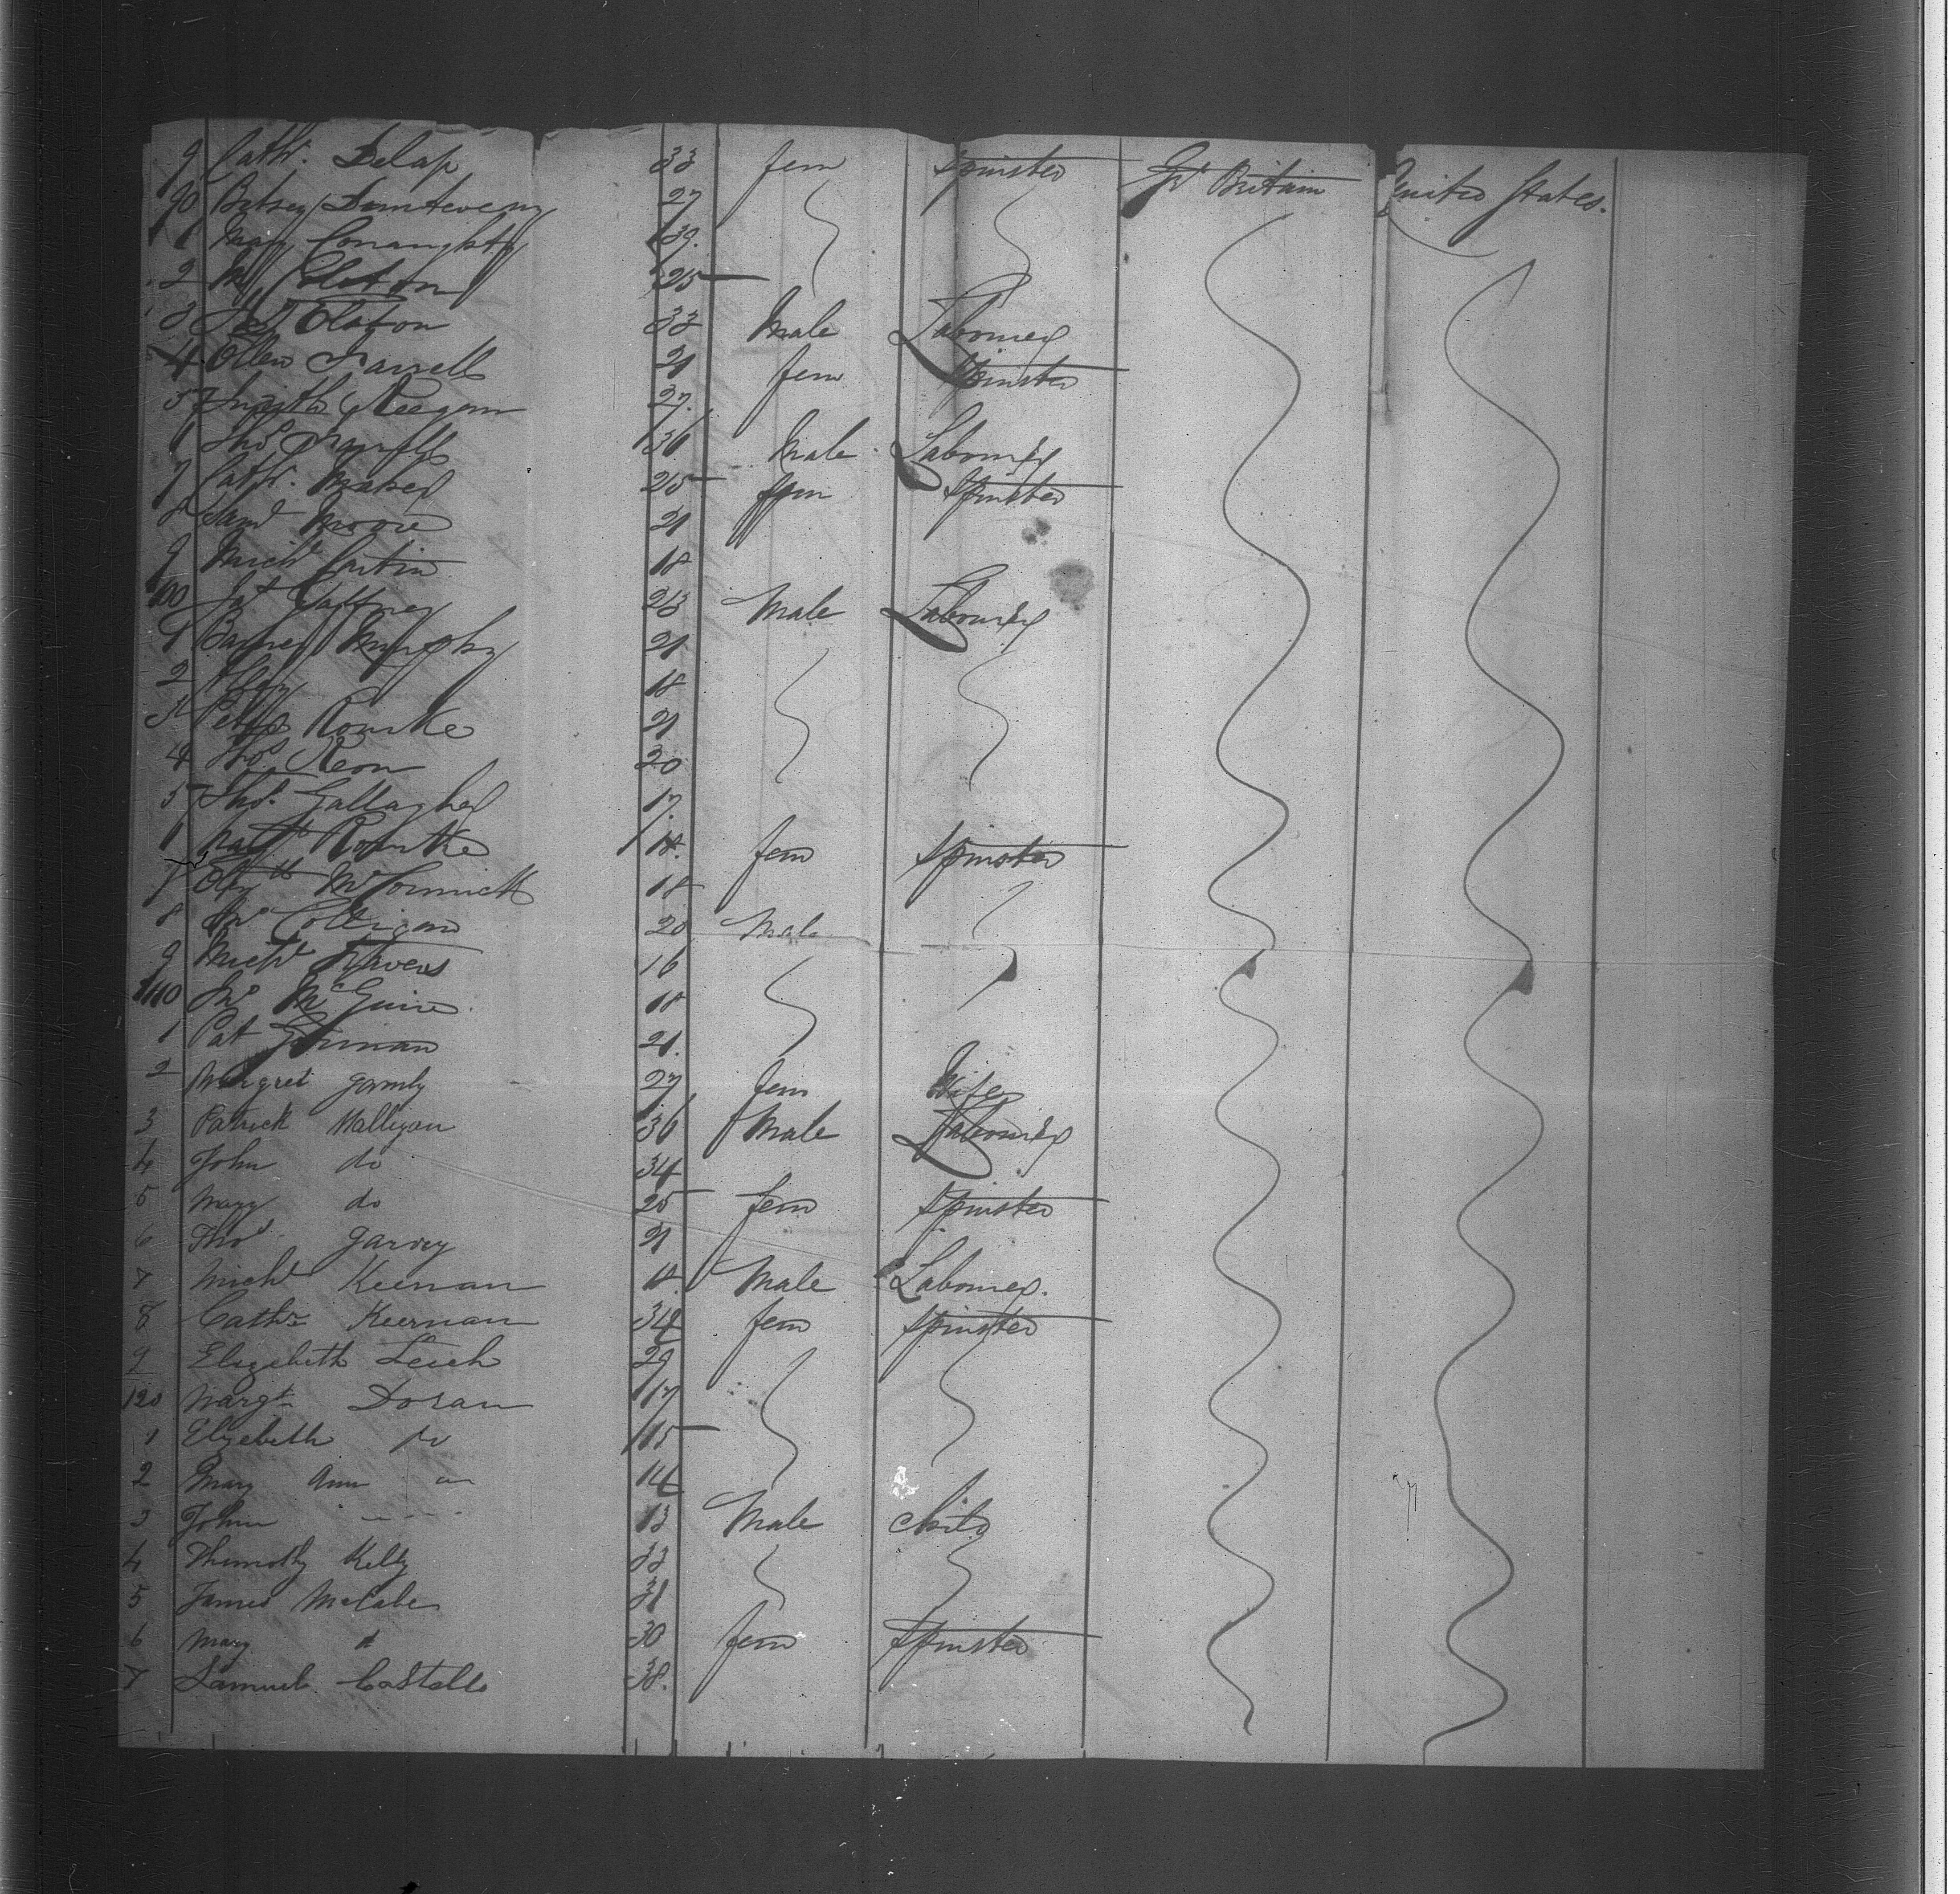 9 Cathr. Delap 33 fem Spinster Gt Britain United States.
90 Betsey 27
1 Mary Conaughty 39.
2 25
3 Elaton 33 Male Labourer
4 Ellen Farrell 21 fem Spinster
5 Reegan 27.
6 Thos Farrell 36 Male Labourer
7 Cathr. Maher 25 fem Spinster
8 Saml Moore 21
9 Michl Curtin 18
100 Pat Gaffney 23 Male Labourer
1 Barney Murphy 21
2 18
3 Peter Rourke 21
4 Thos. Keon 20
5 Thos. Gallagher 17.
6 Rourke 18. fem Spinster
7 Elizth McCormick 18
8 Jno Colligan 20 Male
9 Michl Travers 16
110 Jno McGuire 18
1 Pat Gorman 21.
2 Margret Gormly 27 fem Wife
3 Patrick Malligan 36 Male Labourer
4 John do 34
5 Mary do 25 fem Spinster
6 Thos Garvey 21
7 Michl Keenan 18. Male Labourer.
8 Cathr Keernan 34 fem Spinster
9 Elizebeth Leech 29
120 Margt Doran 17
1 Elizebeth do 15
2 Mary Ann 14
3 John 13 Male Child
4 Thimothy Kelly 33
5 James McCabe 31
6 Mary 30 fem Spinster
7 Samuel Costello 38.